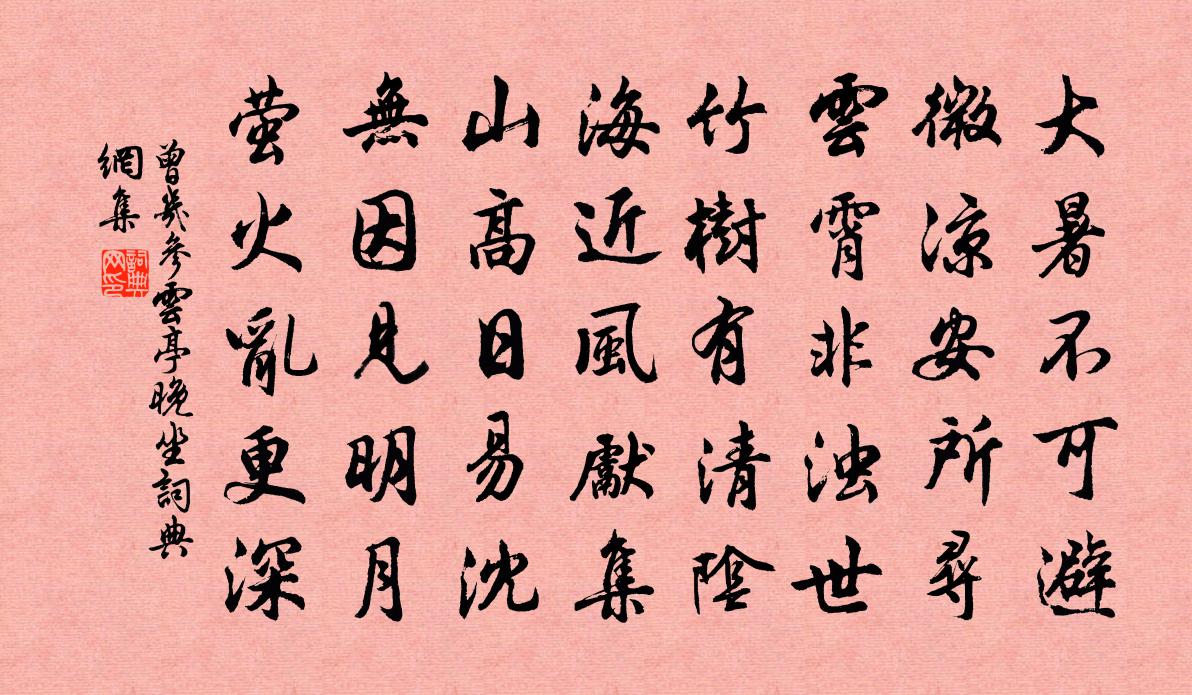 大暑不可避
微涼安所尋
雲霄非浊世
竹樹有清陰
海近風獻集
山高日易沈
無因見明月
萤火亂更深
曾幾參雲亭晚坐詞典
網集
詞典
网印